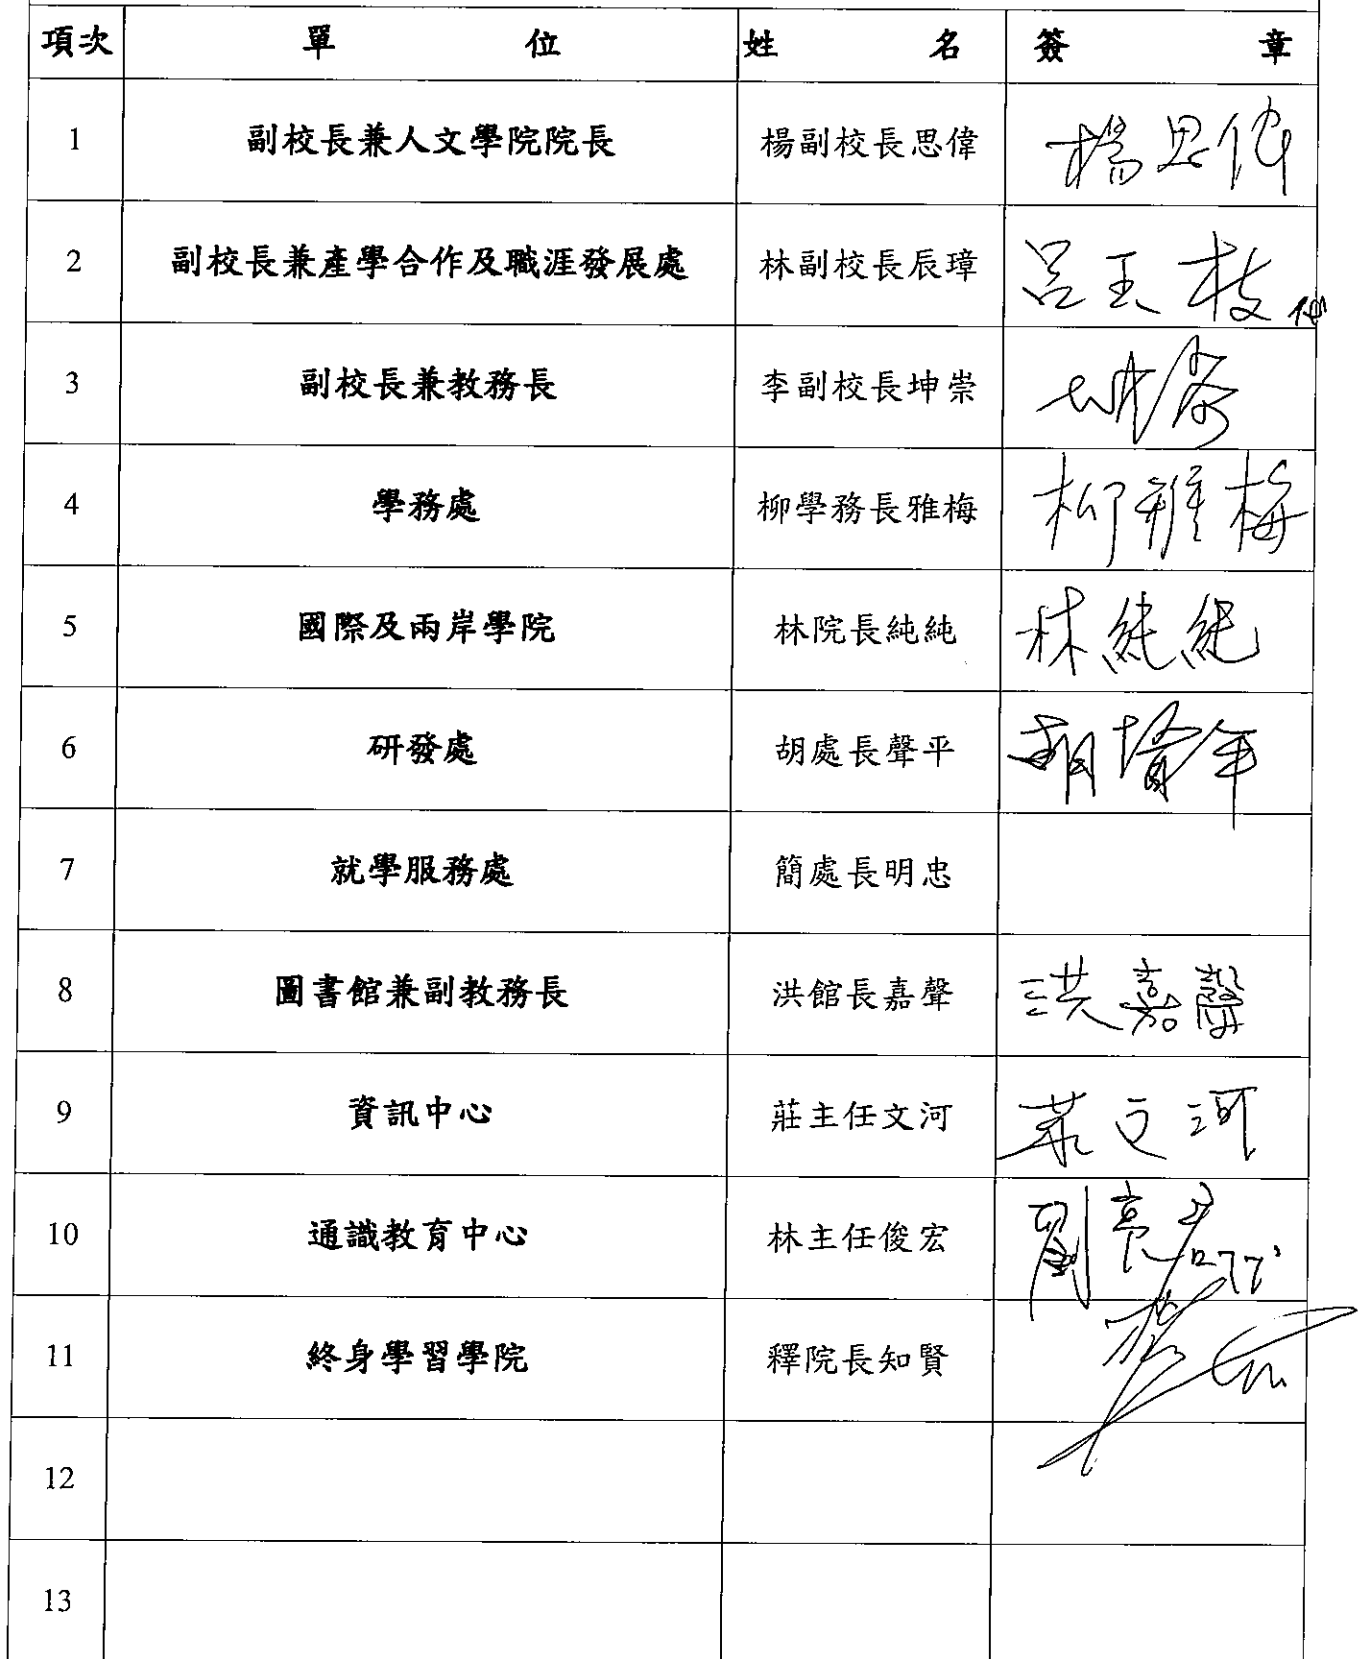 項次 單位 姓名 簽章
1 副校長兼人文學院院長 楊副校長思偉 楊思偉
2 副校長兼產學合作及職涯發展處 林副校長辰璋 呂玉枝代
3 副校長兼教務長 李副校長坤崇 坤崇
4 學務處 柳學務長雅梅 柳雅梅
5 國際及兩岸學院 林院長純純 林純純
6 研發處 胡處長聲平
7 就學服務處 簡處長明忠
8 圖書館兼副教務長 洪館長嘉聲 洪嘉聲
9 資訊中心 莊主任文河 莊文河
10 通識教育中心 林主任俊宏
11 終身學習學院 釋院長知賢
12
13